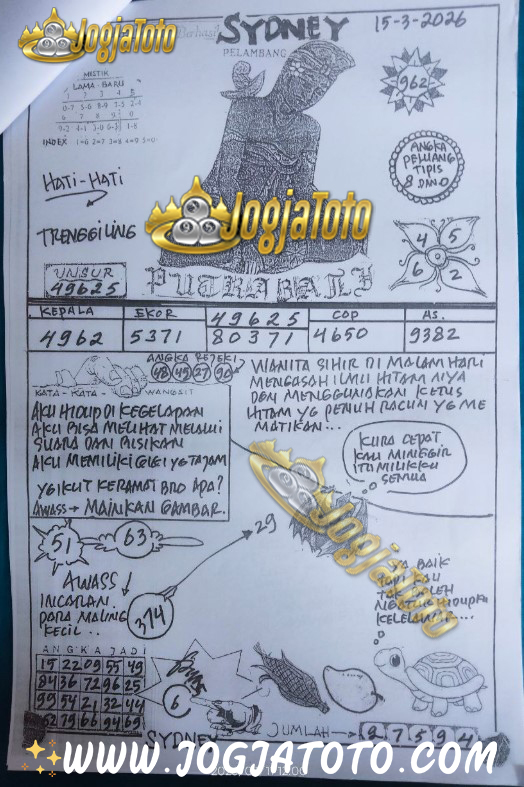 JogjaToto
Berhasil
SYDNEY
PELAMBANG
15-3-2026
MISTIK
LAMA - BARU
INDEX 1=6 2=7 3=8 4=9 5=0
962
HATI-HATI
TRENGGILING
ANGKA
PELUANG
TIPIS
8 DAN 0
4 5
6 2
UNSUR
49625
JogjaToto
PUTRA BALI
KEPALA EKOR 49625 COP AS.
4962 5371 80371 4650 9382
ANGKA REJEKI
48 45 27 90
KATA - KATA - WANGSIT
AKU HIDUP DI KEGELAPAN
AKU BISA MELIHAT MELALUI
SUARA DAN BISIKAN
AKU MEMILIKI GIGI YG TAJAM
YG IKUT KERAMAT BRO APA?
AWASS → MAINKAN GAMBAR.
WANITA SIHIR DI MALAM HARI
MENGASAH ILMU HITAM NYA
DAN MENGGUNAKAN KETUS
HITAM YG PENUH RACUN YG ME
MATIKAN...
KURA CEPAT
KAU MINGGIR
ITU MILIKKU
SEMUA
JogjaToto
51
63
29
AWASS
INCARAN
PARA MALING
KECIL..
374
YA BAIK
TAPI KAU
ANGKA JADI
15 22 09 55 49
84 36 72 96 25
99 54 21 32 44
52 79 66 94 69
6
JUMLAH → 2 7 5 9 4
SYDNEY
WWW.JOGJATOTO.COM